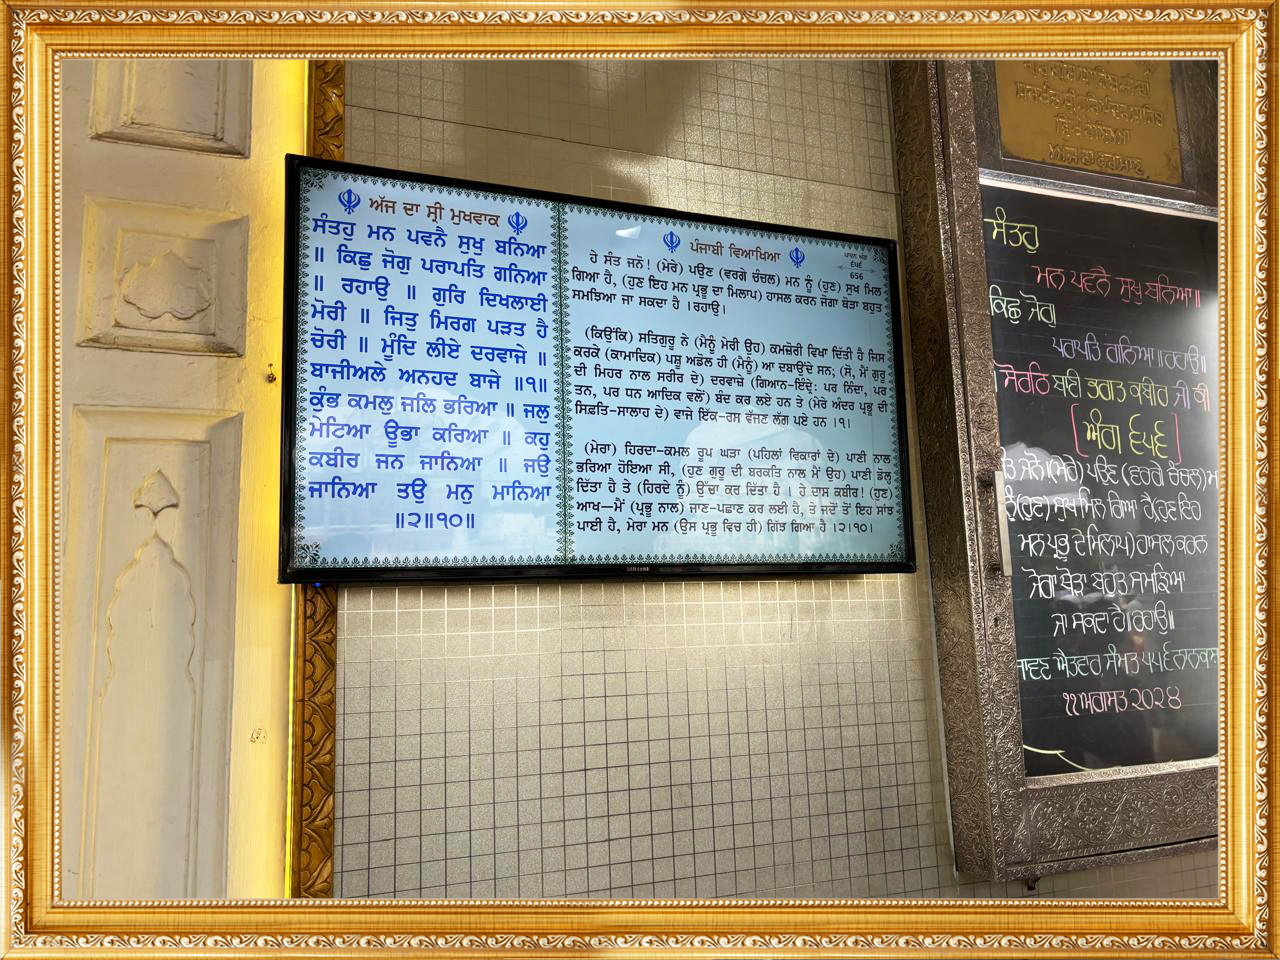 ਅੱਜ ਦਾ ਸ੍ਰੀ ਮੁਖਵਾਕ
ਸੰਤਹੁ ਮਨ ਪਵਨੈ ਸੁਖੁ ਬਨਿਆ
॥ ਕਿਛੁ ਜੋਗੁ ਪਰਾਪਤਿ ਗਨਿਆ
॥ ਰਹਾਉ ॥ ਗੁਰਿ ਦਿਖਲਾਈ
ਮੋਰੀ ॥ ਜਿਤੁ ਮਿਰਗ ਪੜਤ ਹੈ
ਚੋਰੀ ॥ ਮੂੰਦਿ ਲੀਏ ਦਰਵਾਜੇ ॥
ਬਾਜੀਅਲੇ ਅਨਹਦ ਬਾਜੇ ॥੧॥
ਕੁੰਭ ਕਮਲੁ ਜਲਿ ਭਰਿਆ ॥ ਜਲੁ
ਮੇਟਿਆ ਊਭਾ ਕਰਿਆ ॥ ਕਹੁ
ਕਬੀਰ ਜਨ ਜਾਨਿਆ ॥ ਜਉ
ਜਾਨਿਆ ਤਉ ਮਨੁ ਮਾਨਿਆ
॥੨॥੧੦॥
ਪੰਜਾਬੀ ਵਿਆਖਿਆ
ਪਾਵਨ ਅੰਗ
੬੫੬
656
ਹੇ ਸੰਤ ਜਨੋ! (ਮੇਰੇ) ਪਉਣ (ਵਰਗੇ ਚੰਚਲ) ਮਨ ਨੂੰ (ਹੁਣ) ਸੁਖ ਮਿਲ
ਗਿਆ ਹੈ, (ਹੁਣ ਇਹ ਮਨ ਪ੍ਰਭੂ ਦਾ ਮਿਲਾਪ) ਹਾਸਲ ਕਰਨ ਜੋਗਾ ਥੋੜਾ ਬਹੁਤ
ਸਮਝਿਆ ਜਾ ਸਕਦਾ ਹੈ ।ਰਹਾਉ।
(ਕਿਉਂਕਿ) ਸਤਿਗੁਰੂ ਨੇ (ਮੈਨੂੰ ਮੇਰੀ ਉਹ) ਕਮਜ਼ੋਰੀ ਵਿਖਾ ਦਿੱਤੀ ਹੈ ਜਿਸ
ਕਰਕੇ (ਕਾਮਾਦਿਕ) ਪਸ਼ੂ ਅਡੋਲ ਹੀ (ਮੈਨੂੰ) ਆ ਦਬਾਉਂਦੇ ਸਨ; (ਸੋ, ਮੈਂ ਗੁਰੂ
ਦੀ ਮਿਹਰ ਨਾਲ ਸਰੀਰ ਦੇ) ਦਰਵਾਜ਼ੇ (ਗਿਆਨ-ਇੰਦ੍ਰੇ: ਪਰ ਨਿੰਦਾ, ਪਰ
ਤਨ, ਪਰ ਧਨ ਆਦਿਕ ਵਲੋਂ) ਬੰਦ ਕਰ ਲਏ ਹਨ ਤੇ (ਮੇਰੇ ਅੰਦਰ ਪ੍ਰਭੂ ਦੀ
ਸਿਫ਼ਤਿ-ਸਾਲਾਹ ਦੇ) ਵਾਜੇ ਇੱਕ-ਰਸ ਵੱਜਣ ਲੱਗ ਪਏ ਹਨ ।੧।
(ਮੇਰਾ) ਹਿਰਦਾ-ਕਮਲ ਰੂਪ ਘੜਾ (ਪਹਿਲਾਂ ਵਿਕਾਰਾਂ ਦੇ) ਪਾਣੀ ਨਾਲ
ਭਰਿਆ ਹੋਇਆ ਸੀ, (ਹੁਣ ਗੁਰੂ ਦੀ ਬਰਕਤਿ ਨਾਲ ਮੈਂ ਉਹ) ਪਾਣੀ ਡੋਲ੍ਹ
ਦਿੱਤਾ ਹੈ ਤੇ (ਹਿਰਦੇ ਨੂੰ) ਉੱਚਾ ਕਰ ਦਿੱਤਾ ਹੈ । ਹੇ ਦਾਸ ਕਬੀਰ! (ਹੁਣ)
ਆਖ—ਮੈਂ (ਪ੍ਰਭੂ ਨਾਲ) ਜਾਣ-ਪਛਾਣ ਕਰ ਲਈ ਹੈ, ਤੇ ਜਦੋਂ ਤੋਂ ਇਹ ਸਾਂਝ
ਪਾਈ ਹੈ, ਮੇਰਾ ਮਨ (ਉਸ ਪ੍ਰਭੂ ਵਿਚ ਹੀ) ਗਿੱਝ ਗਿਆ ਹੈ ।੨।੧੦।
SAMSUNG
ਅੱਜ ਦਾ ਫੁਰਮਾਣ
ਸੰਤਹੁ
ਮਨ ਪਵਨੈ ਸੁਖੁ ਬਨਿਆ॥
ਕਿਛੁ ਜੋਗੁ
ਪਰਾਪਤਿ ਗਨਿਆ॥ਰਹਾਉ॥
ਸੋਰਠਿ ਬਾਣੀ ਭਗਤ ਕਬੀਰ ਜੀ ਕੀ
[ਅੰਗ ੬੫੬]
ਜਨੋ! (ਮੇਰੇ) ਪਉਣ (ਵਰਗੇ ਚੰਚਲ) ਮ
ਨੂੰ (ਹੁਣ) ਸੁਖ ਮਿਲ ਗਿਆ ਹੈ, (ਹੁਣ ਇਹ
ਮਨ ਪ੍ਰਭੂ ਦੇ ਮਿਲਾਪ) ਹਾਸਲ ਕਰਨ
ਜੋਗਾ ਥੋੜਾ ਬਹੁਤ ਸਮਝਿਆ
ਜਾ ਸਕਦਾ ਹੈ॥ਰਹਾਉ॥
ਐਤਵਾਰ, ਸੰਮਤ ੫੫੬ ਨਾਨਕਸ਼
੧੧ ਅਗਸਤ ੨੦੨੪